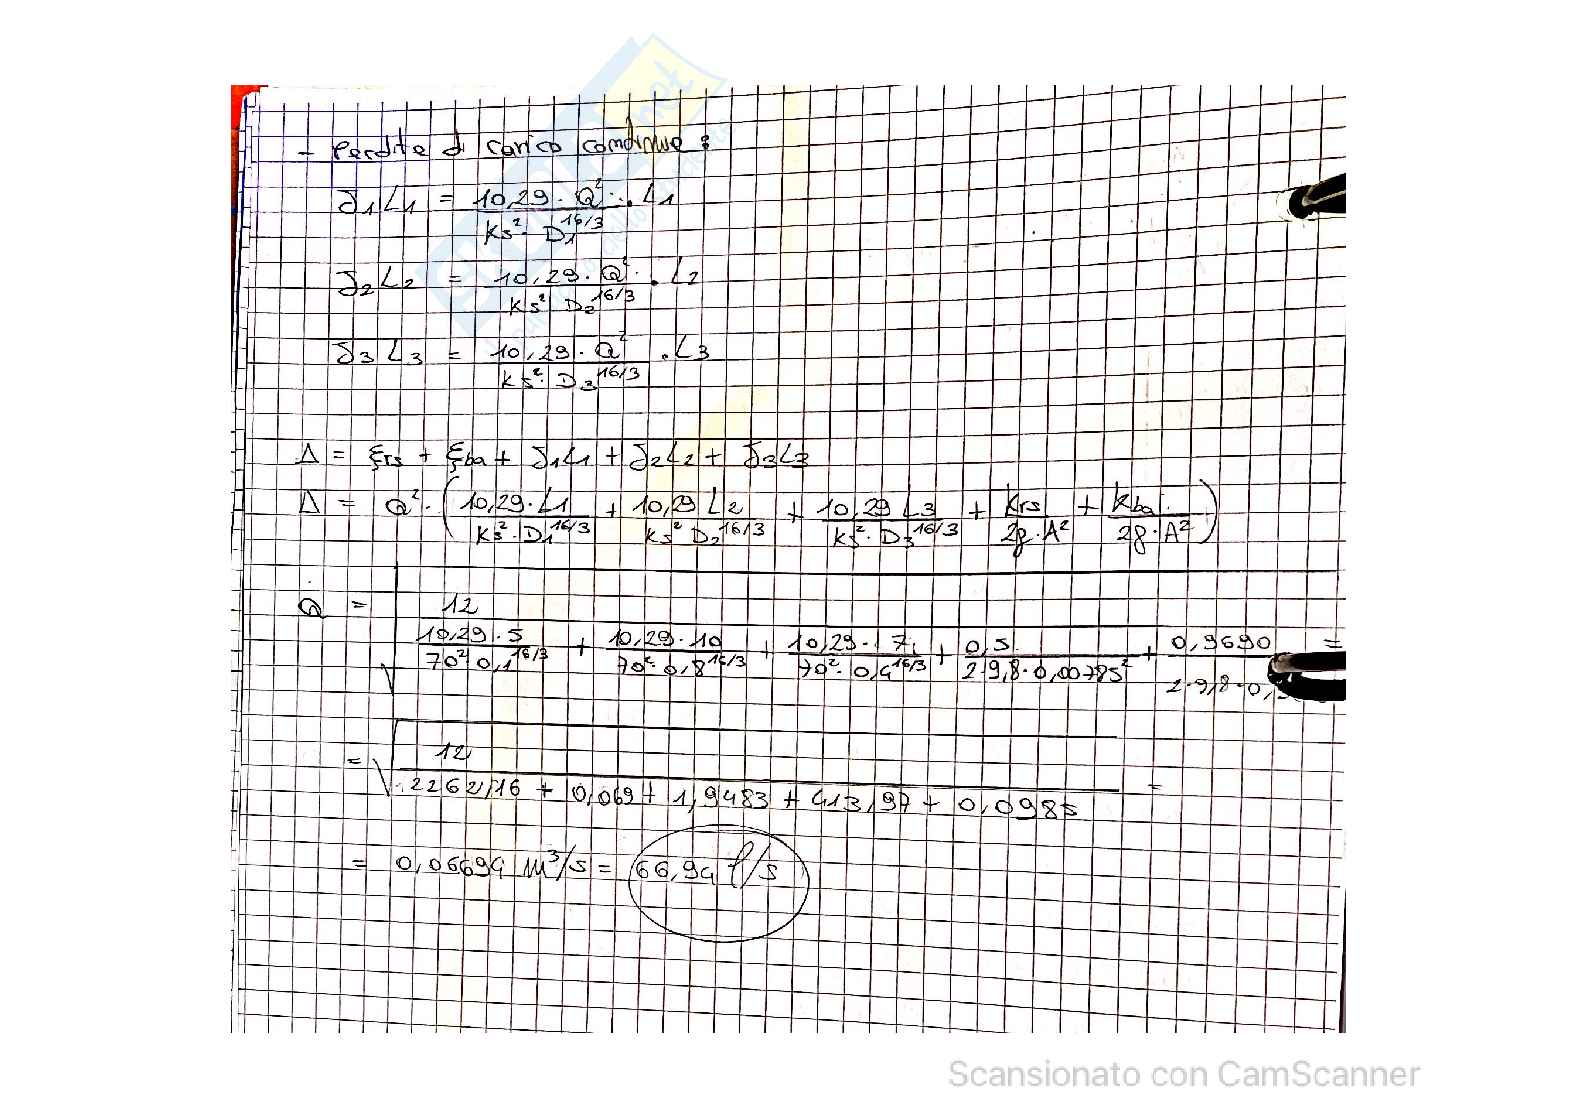 - Perdite di carico continue:
J₁L₁ = 10,29 · Q² / Ks² · D₁^16/3 · L₁
J₂L₂ = 10,29 · Q² / Ks² · D₂^16/3 · L₂
J₃L₃ = 10,29 · Q² / Ks² · D₃^16/3 · L₃
Δ = ξrs + ξba + J₁L₁ + J₂L₂ + J₃L₃
Δ = Q² · (10,29 · L₁ / Ks² · D₁^16/3 + 10,29 L₂ / Ks² D₂^16/3 + 10,29 L₃ / Ks² · D₃^16/3 + Krs / 2g · A² + Kba / 2g · A²)
Q = √ 12 / 10,29 · 5 / 70² 0,1^16/3 + 10,29 · 10 / 70² · 0,8^16/3 + 10,29 · 7 / 70² · 0,4^16/3 + 0,5 / 2 · 9,8 · 0,00785² + 0,9690 / 2 · 9,8 · 0, =
= √ 12 / 2262,16 + 0,069 + 1,9483 + 413,97 + 0,0985 =
= 0,06694 m³/s = 66,94 l/s
Scansionato con CamScanner